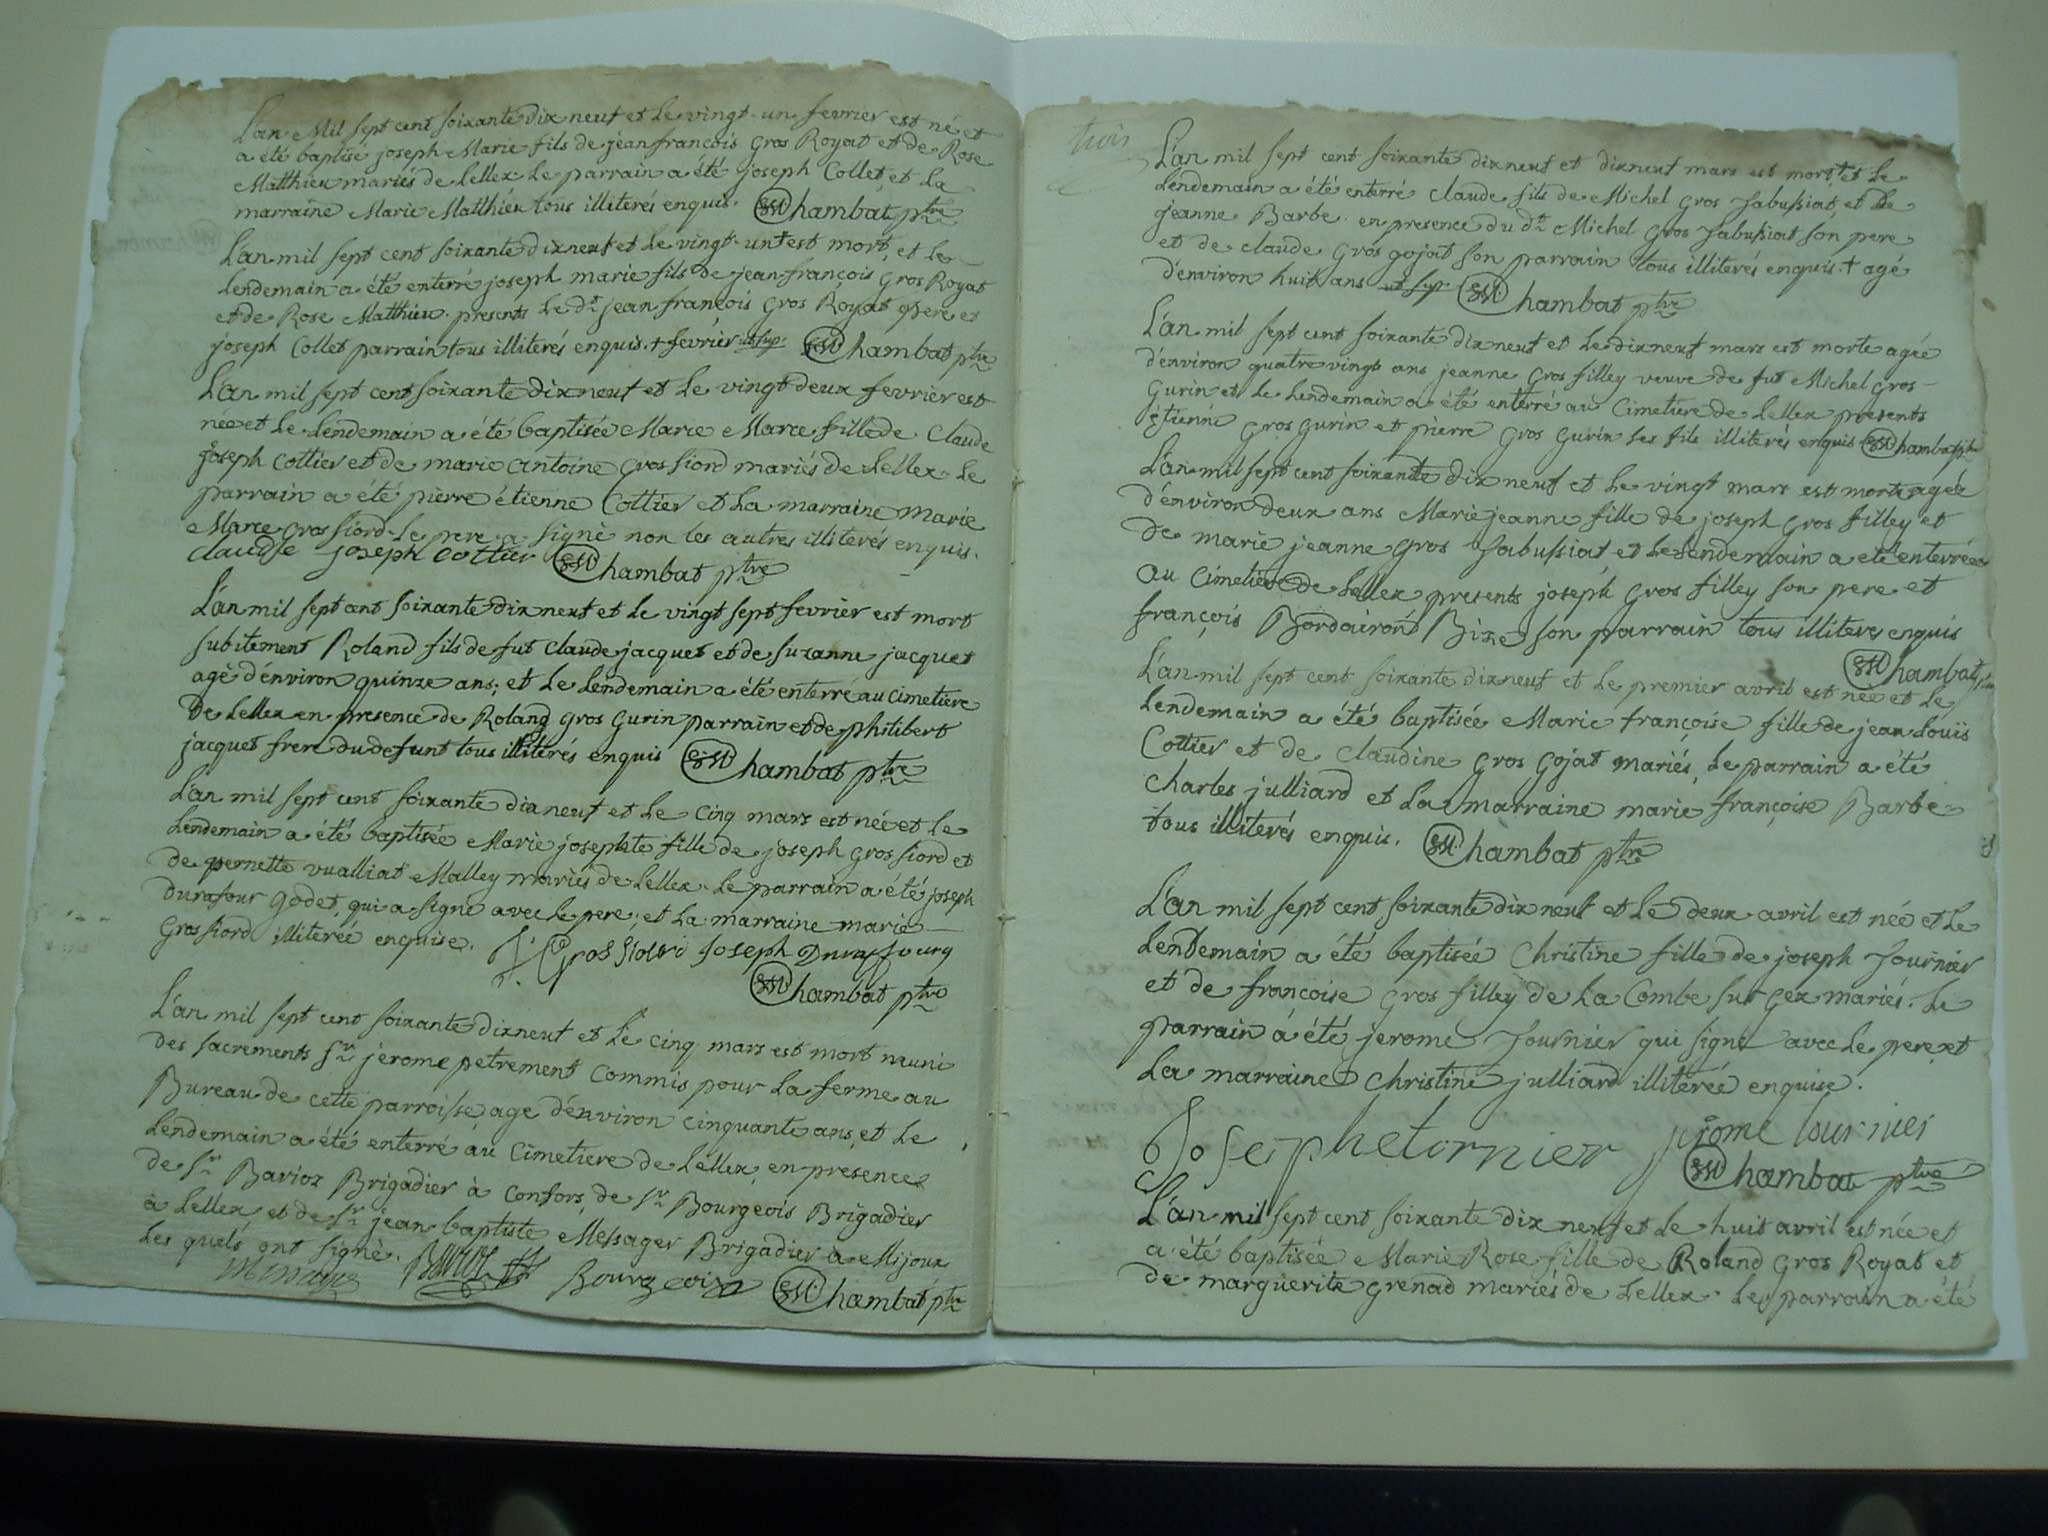 L'an Mil sept cent soixante dix neuf et le vingt-un fevrier est né et
a été baptisé joseph Marie fils de jean françois Gros Royat et de Rose
Matthieu mariés de Lellex le parrain a été joseph Collet et La
marraine Marie Matthieu tous illiterés enquis. Chambat ptre
L'an mil sept cent soixante dix neuf et le vingt-un + est mort, et le
lendemain a été enterré joseph marie fils de jean-françois Gros Royat
et de Rose Matthieu. presents le dt jean françois Gros Royat pere et
joseph Collet parrain tous illiterés enquis. + fevrier ut sup. Chambat ptre
L'an mil sept cent soixante dix neuf et le vingt deux fevrier est
née et le lendemain a été baptisée Marie Marce fille de Claude
joseph Cottier et de marie antoine Gros fiord mariés de Lellex le
parrain a été pierre étienne Cottier et La marraine Marie
Marce gros fiord le pere a signé non les autres illiterés enquis.
claudse joseph cottier Chambat ptre
L'an mil sept cent soixante dix neuf et le vingt sept fevrier est mort
subitement Roland fils de fut claude jacquet et de suzanne jacquet
agé d'énviron quinze ans; et le lendemain a été enterré au cimetiere
De Lellex en presence de Roland gros gurin parrain et de philibert
jacquet frere du defunt tous illiterés enquis Chambat ptre
L'an mil sept cent soixante dix neuf et le cinq mars est née et le
lendemain a été baptisée Marie josephte fille de joseph gros fiord et
de pernette vualliat Malley mariés de Lellex. Le parrain a été joseph
Durafour godet, qui a signé avec le pere; et La marraine marie
Gros fiord illiterée enquise. J. Gros fiord joseph Duraffourg
Chambat ptre
L'an mil sept cent soixante dix neuf et le cinq mars est mort muni
des sacrements sr jerome petrement Commis pour La ferme au
Bureau de cette parroisse, age d'énviron cinquante ans, et le
lendemain a été enterré au Cimetiere de Lellex, en présence
de sr Barioz Brigadier à Confors, de sr Bourgeois Brigadier
à Lellex et de sr jean baptiste Messager Brigadier a Mijoux
les quels ont signé. Barioz Bourgeois Chambat ptre
trois
L'an mil sept cent soixante dix neuf et dixneuf mars est mort, et le
lendemain a été enterré claude fils de Michel Gros Jabussiat, et de
jeanne Barbe en presence du dt Michel Gros Jabussiat son pere
et de claude Gros gojat son parrain tous illiterés enquis. + agé
d'énviron huit ans ut sup. Chambat ptre
L'an mil sept cent soixante dix neuf et le dixneuf mars est morte agée
d'énviron quatre vingts ans jeanne Gros filley veuve de fut Michel Gros
Gurin et le lendemain a été enterré au Cimetiere de Lellex presents
étienne Gros Gurin et pierre Gros Gurin ses fils illiterés enquis Chambat ptre
L'an mil sept cent soixante dix neuf et le vingt mars est morte agée
d'énviron deux ans Marie jeanne fille de joseph Gros filley et
De marie jeanne Gros Jabussiat et le lendemain a eté enterrée
au cimetiere De Lellex presents joseph Gros filley son pere et
françois Bordairon Bize son parrain tous illiteres enquis
Chambat ptre
L'an mil sept cent soixante dix neuf et le premier avril est née et le
lendemain a été baptisée Marie françoise fille de jean Louis
Cottier et de claudine Gros gojat mariés, le parrain a été
charles julliard et La marraine marie françoise Barbe
tous illiterés enquis. Chambat ptre
L'an mil sept cent soixante dix neuf et le deux avril est née et le
lendemain a été baptisée Christine fille de joseph Fournier
et de francoise Gros filley de La Combe sur Gex mariés. Le
parrain a été jerome Fournier qui signe avec le pere et
La marraine Christine julliard illiterée enquise.
Josephe tornier jerome tournier
Chambat ptre
L'an mil sept cent soixante dix neuf et le huit avril est née et
a été baptisée Marie Rose fille de Roland Gros Royat et
de marguerite grenad mariés de Lellex. Le parrain a été